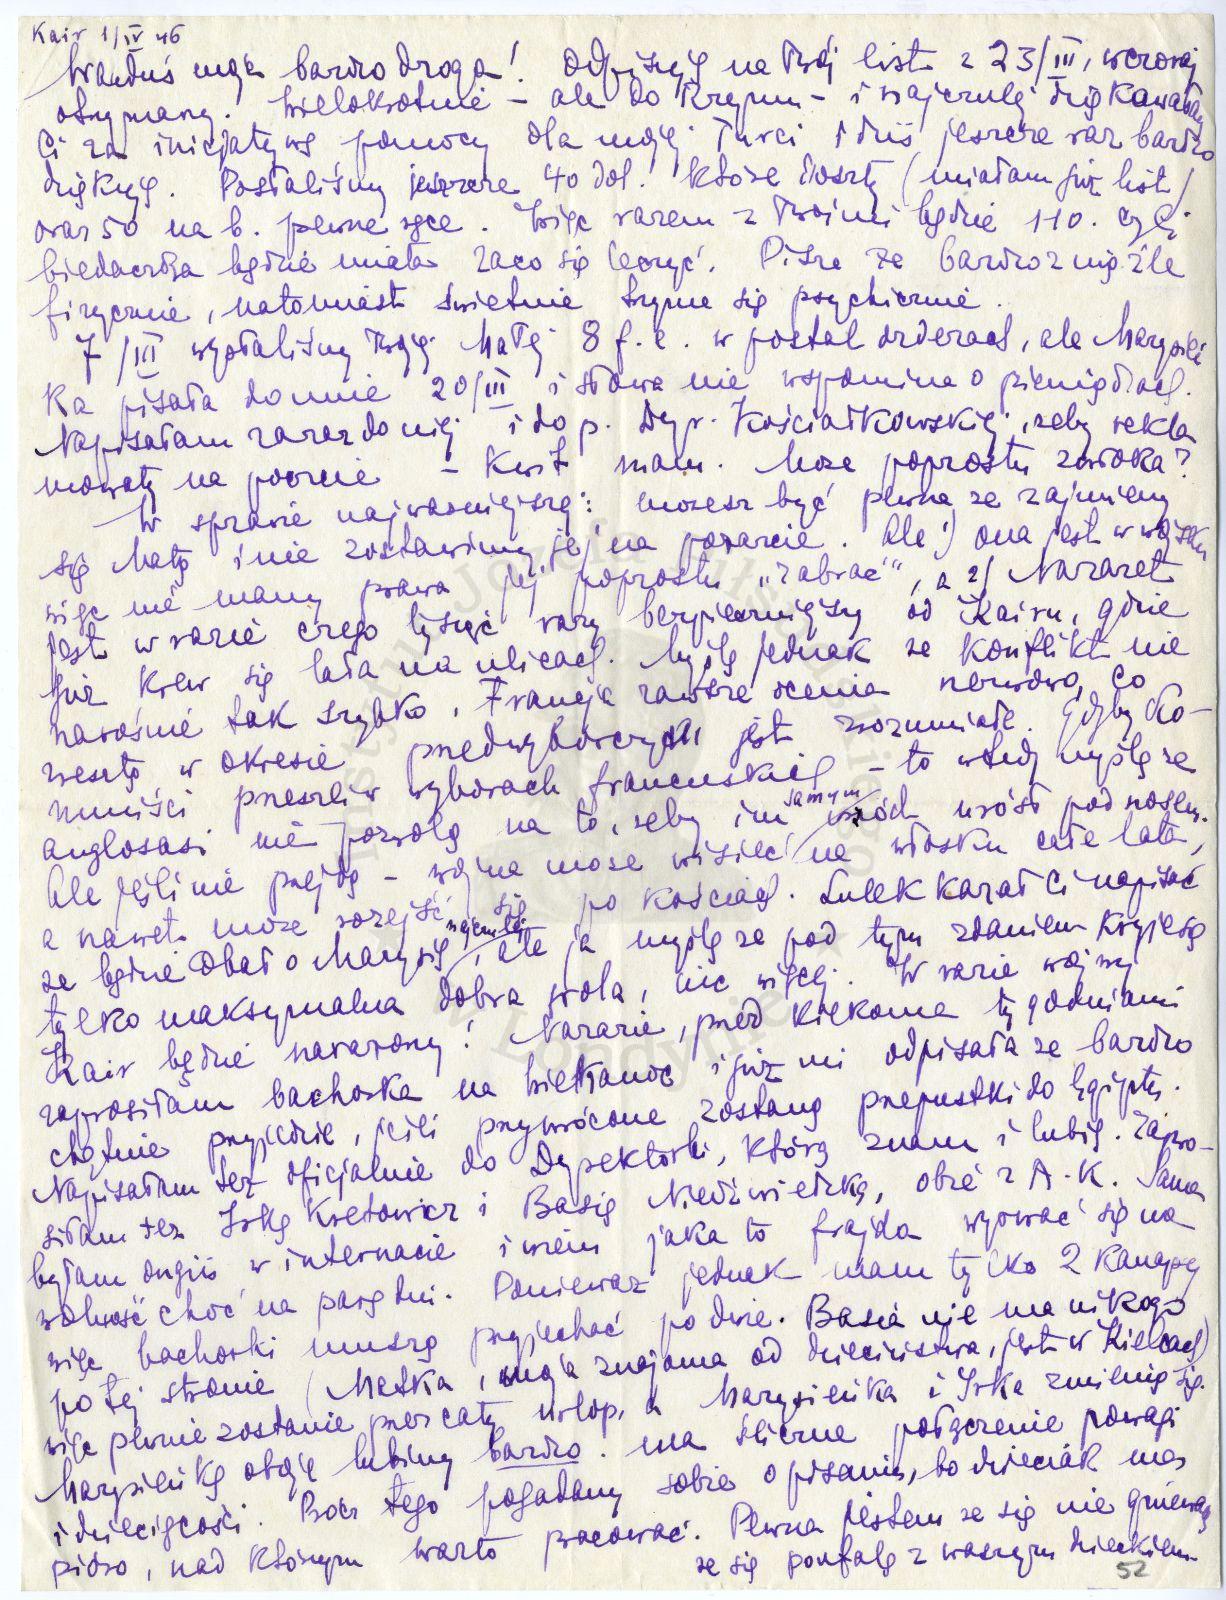 Kair 1/IV 46
Wanduś moja bardzo droga! Odpisuję na Twój list z 23/III, wczoraj
otrzymany. Wielokrotnie – ale do Rzymu – i najczulej dziękowałam
Ci za inicjatywę pomocy dla mojej Turci i dziś jeszcze raz bardzo
dziękuję. Posłaliśmy jeszcze 40 dol. które doszły (miałam już list)
oraz 50 na b. pewne ręce. Więc razem z Twoimi będzie 110. czyli
biedaczka będzie miała zaco się leczyć. Pisze że bardzo z nią źle
fizycznie, natomiast świetnie trzyma się psychicznie.
7/III wysłaliśmy Twojej Małej 8 f. e. w postal orderach, ale Marysień
ka pisała do mnie 20/III i słowa nie wspomina o pieniądzach.
Napisałam zaraz do niej i do p. Dyr. Kościałkowskiej, żeby rekla
mowały na poczcie – kwit mam. Może poprostu zwłoka?
W sprawie najważniejszej: możesz być pewna że zajmiemy
się Małą i nie zostawimy jej na pożarcie. Ale 1) ona jest w wojsku
więc nie mamy prawa jej poprostu „zabrać”, a 2) Nazaret
jest w razie czego tysiąc razy bezpieczniejszy od Kairu, gdzie
już krew się lała na ulicach. Myślę jednak że konflikt nie
narośnie tak szybko. Francja zawsze ocenia nerwowo, co
zresztą w okresie przedwyborczym jest zrozumiałe. Gdyby Ko-
muniści przeszli w wyborach francuskich – to wtedy myślę że
anglosasi nie pozwolą na to, żeby im wrzód urósł pod samym nosem.
Ale jeśli nie przejdą – wojna może wisieć na włosku całe lata,
a nawet może rozejść się po kościach. Lulek kazał Ci napisać
że będzie dbał o Marysię najczulej, ale ja myślę że pod tym zdaniem kryje się
tylko maksymalna dobra wola, nic więcej. W razie wojny
Kair będzie narażony! Narazie, przed kilkoma tygodniami
zaprosiłam bachorka na Wielkanoc i już mi odpisała że bardzo
chętnie przyjedzie, jeśli przywrócone zostaną przepustki do Egiptu.
Napisałam też oficjalnie do Dyrektorki, którą znam i lubię. Zapro-
siłam też Irkę Kretowicz i Basię Niedźwiedzką, obie z A.K. Sama
byłam ongiś w internacie i wiem jaka to frajda wyrwać się na
wolność choć na parę dni. Ponieważ jednak mam tylko 2 kanapy
więc bachorki muszą przyjechać po dwie. Basia nie ma nikogo
po tej stronie (Matka, moja znajoma od dzieciństwa, jest w Kielcach)
więc pewnie zostanie przez cały urlop, a Marysieńka i Irka zmienią się.
Marysieńkę oboje lubimy bardzo. Ma śliczne połączenie powagi
i dziecięcości. Prócz tego pogadamy sobie o pisaniu, bo dzieciak ma
pióro, nad którym warto pracować. Pewna jestem że się nie gniewasz
że się poufalę z waszym dzieckiem
52
Instytut Józefa Piłsudskiego
w Londynie